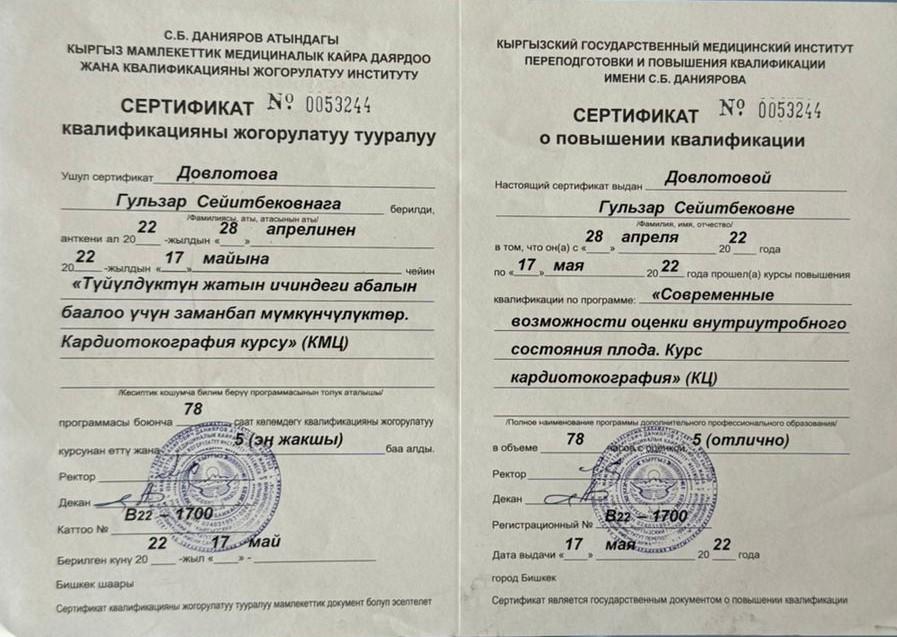 С.Б. ДАНИЯРОВ АТЫНДАГЫ
КЫРГЫЗ МАМЛЕКЕТТИК МЕДИЦИНАЛЫК КАЙРА ДАЯРДОО
ЖАНА КВАЛИФИКАЦИЯНЫ ЖОГОРУЛАТУУ ИНСТИТУТУ
СЕРТИФИКАТ № 0053244
квалификацияны жогорулатуу тууралуу
Ушул сертификат Довлотова
Гульзар Сейитбековнага берилди,
/Фамилиясы, аты, атасынын аты/
анткени ал 20 22 -жылдын « 28 » апрелинен
20 22 -жылдын « 17 » майына чейин
«Түйүлдүктүн жатын ичиндеги абалын
баалоо үчүн заманбап мүмкүнчүлүктөр.
Кардиотокография курсу» (КМЦ)
/Кесиптик кошумча билим берүү программасынын толук аталышы/
программасы боюнча 78 саат көлөмдөгү квалификацияны жогорулатуу
курсунан өттү жана 5 (эң жакшы) баа алды.
Ректор
Декан
Каттоо № В22 – 1700
Берилген күнү 20 22 -жыл « 17 » - май
Бишкек шаары
Сертификат квалификацияны жогорулатуу тууралуу мамлекеттик документ болуп эсептелет
КЫРГЫЗСКИЙ ГОСУДАРСТВЕННЫЙ МЕДИЦИНСКИЙ ИНСТИТУТ
ПЕРЕПОДГОТОВКИ И ПОВЫШЕНИЯ КВАЛИФИКАЦИИ
ИМЕНИ С.Б. ДАНИЯРОВА
СЕРТИФИКАТ № 0053244
о повышении квалификации
Настоящий сертификат выдан Довлотовой
Гульзар Сейитбековне
/Фамилия, имя, отчество/
в том, что он(а) с « 28 » апреля 20 22 года
по « 17 » мая 20 22 года прошел(а) курсы повышения
квалификации по программе: «Современные
возможности оценки внутриутробного
состояния плода. Курс
кардиотокография» (КЦ)
/Полное наименование программы дополнительного профессионального образования/
в объеме 78 часов с оценкой 5 (отлично)
Ректор
Декан
Регистрационный № В22 – 1700
Дата выдачи « 17 » мая 20 22 года
город Бишкек
Сертификат является государственным документом о повышении квалификации